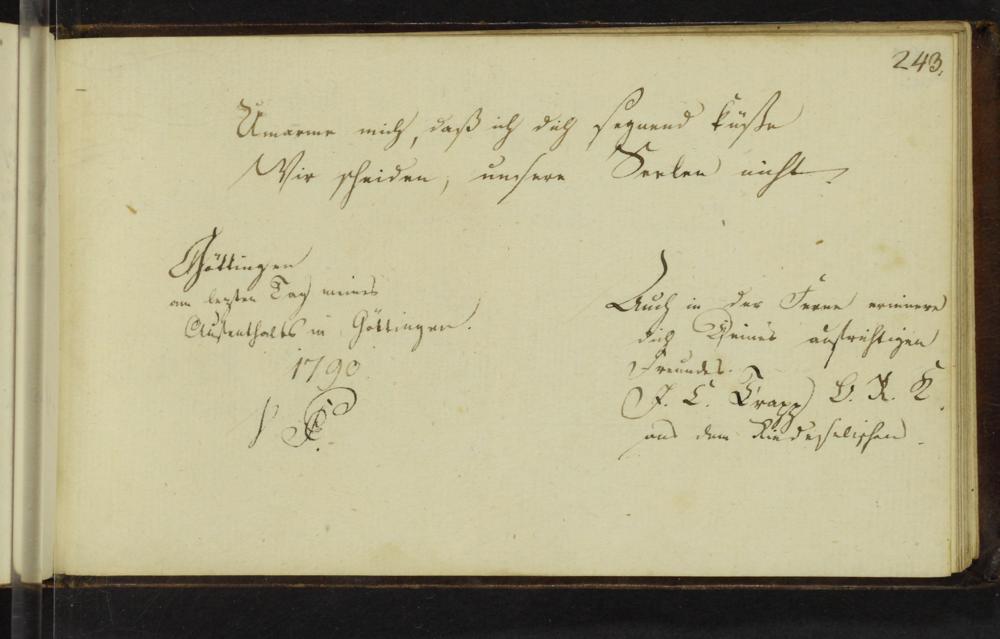 243.
Umarme mich, daß ich dich segnend küße
Wir scheiden, unsere Seelen nicht.
Göttingen
am lezten Tag meines
Aufenthalts in Göttingen.
1790.
Auch in der Ferne erinnere
dich Deines aufrichtigen
Freundes.
J. C. Trapp B. R. K.
aus dem Riedeselischen.